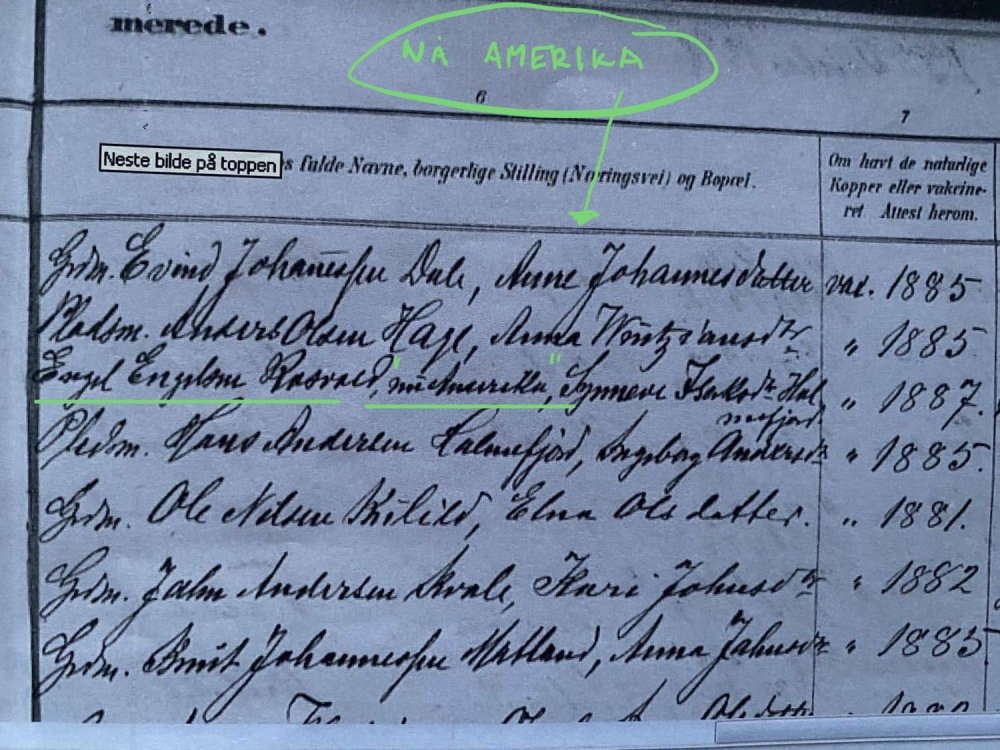 merede.
NÅ AMERIKA
6
7
Neste bilde på toppen s fulde Navne, borgerlige Stilling (Næringsvei) og Bopæl.
Om havt de naturlige
Kopper eller vakcine-
ret. Attest herom.
Grdm. Evind Johannessen Dale, Anne Johannesdatter vac. 1885
Pladsm. Anders Olsen Hage, Anna " 1885
Engel Engelsen Røsvald, "nu Amerika", Synneve Isaksdr Hal " 1887.
nesfjord.
Pladsm. Hans Andersen Halnefjord, Ingeborg Andersdr " 1885.
Grdm. Ole Nilsen Elna Olsdatter. " 1881.
Grdm. Jahn Andersen Kvale, Kari Johnsdr " 1882
Grdm. Johannessen Matland, Anna Jahnsdr " 1885